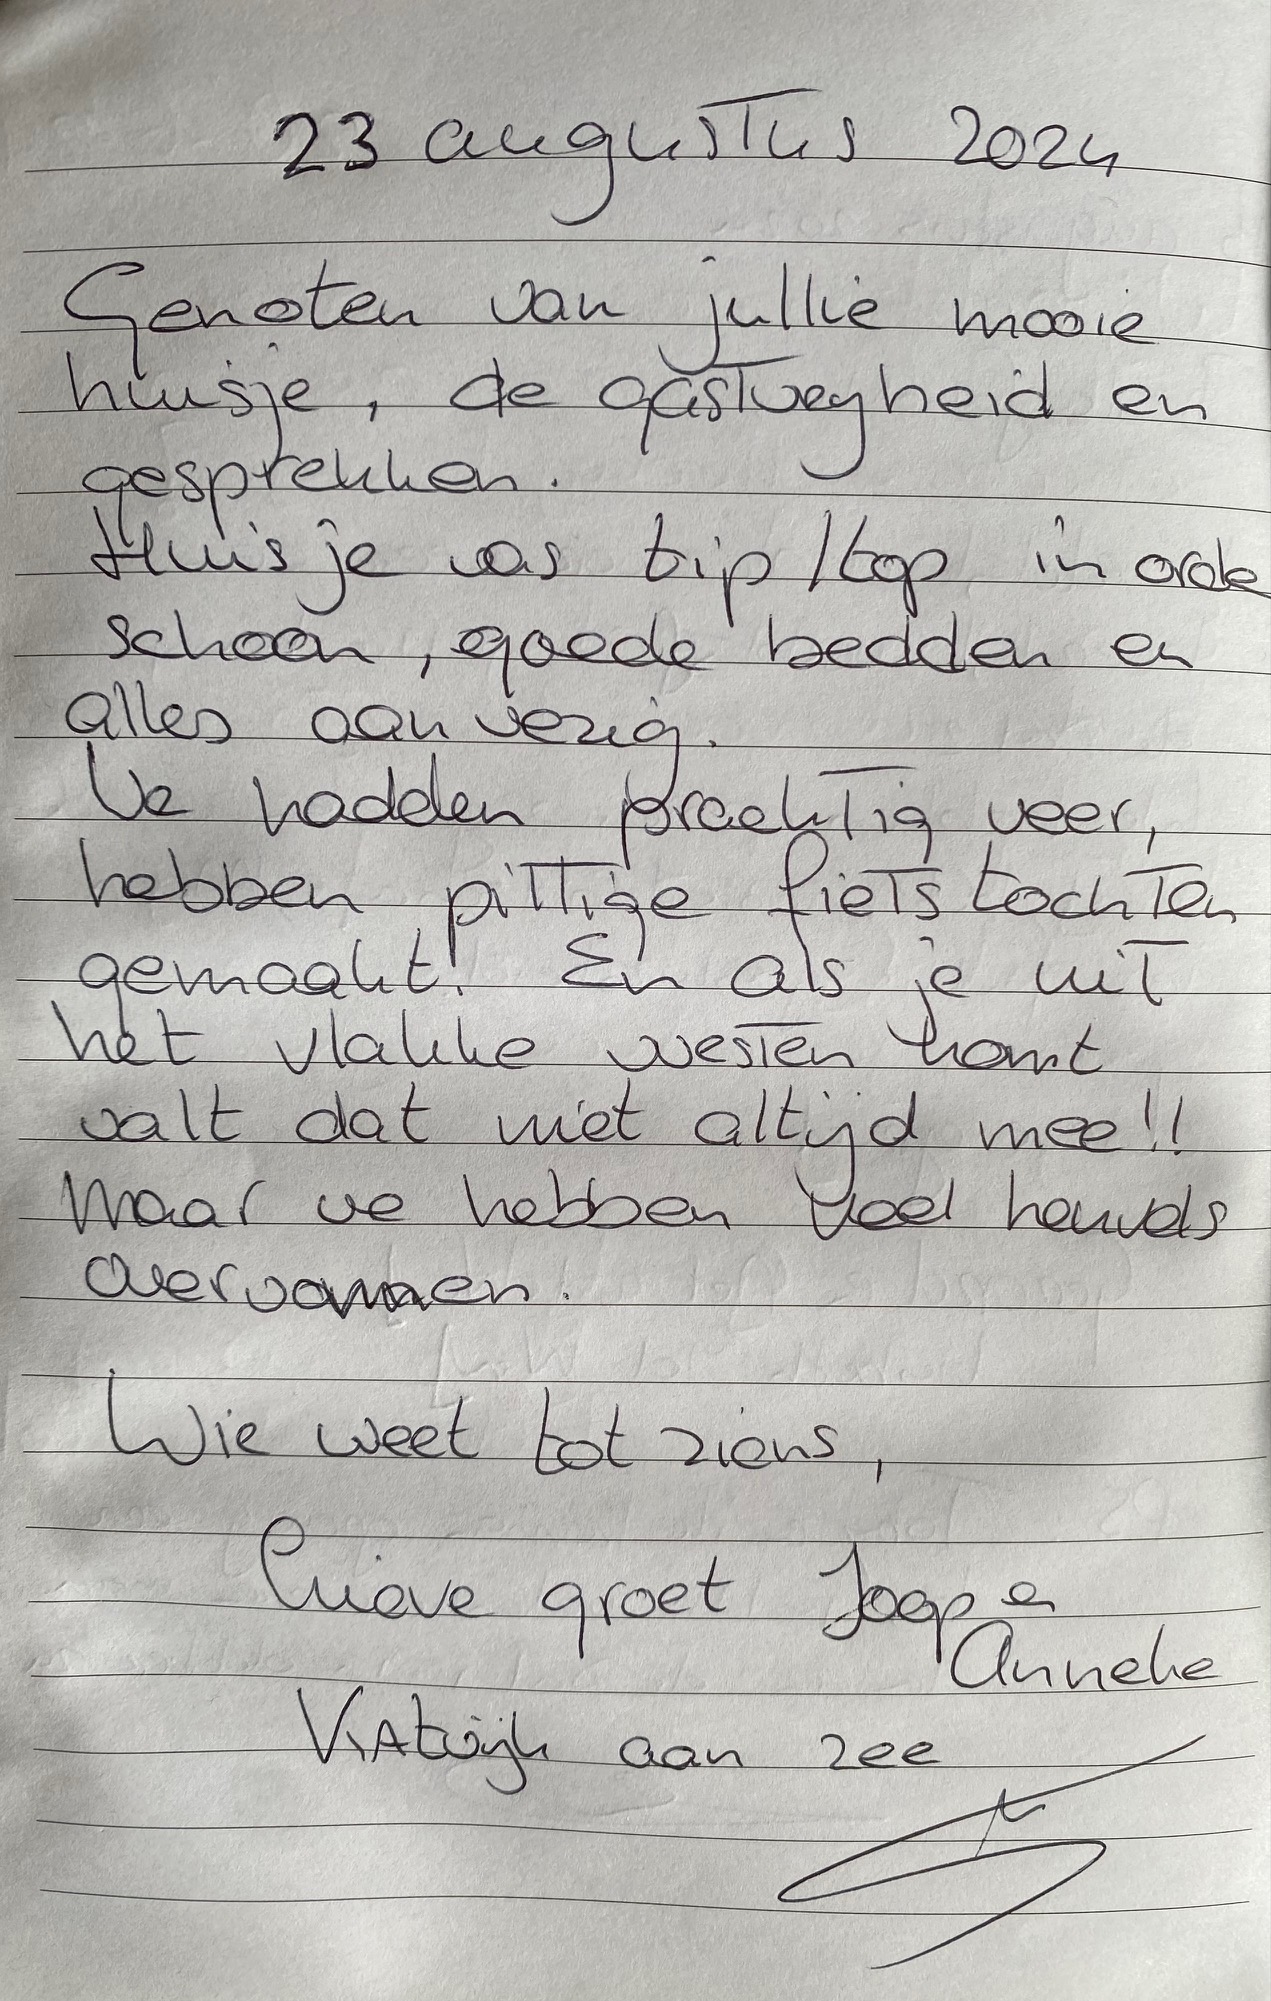 23 augustus 2024
Genoten van jullie mooie
huisje, de gastvryheid en
gesprekken.
Huisje was tip/top in orde
schoon, goede bedden en
alles aanwezig.
We hadden prachtig weer,
hebben pittige fietstochten
gemaakt! En als je uit
het vlakke westen komt
valt dat niet altijd mee!!
Maar we hebben veel heuvels
overwonnen.
Wie weet tot ziens,
Lieve groet Joop en
Anneke
Katwijk aan zee